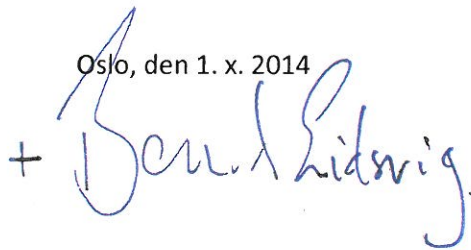 Oslo, den 1. x. 2014
+ Bernt Eidsvig